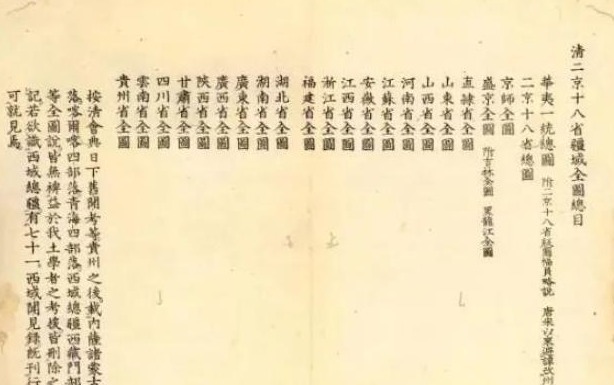 清二京十八省疆域全圖總目
華夷一統總圖 附二京十八省疆圉幅員略說 唐宋以來避諱改州
二京十八省總圖
京師全圖
盛京全圖 附吉林全圖 黑龍江全圖
直隷省全圖
山東省全圖
山西省全圖
河南省全圖
江蘇省全圖
安徽省全圖
江西省全圖
浙江省全圖
福建省全圖
湖北省全圖
湖南省全圖
廣東省全圖
廣西省全圖
陝西省全圖
甘肅省全圖
四川省全圖
雲南省全圖
貴州省全圖
按清會典日下舊聞考等貴州之後載內薩諸蒙古
落喀爾喀四部落青海四部落西域總疆西藏門部
等全圖說皆無裨益於我土學者之考據皆刪除之
記若欲識西域總疆有七十一西域聞見錄旣刊行
可就見焉